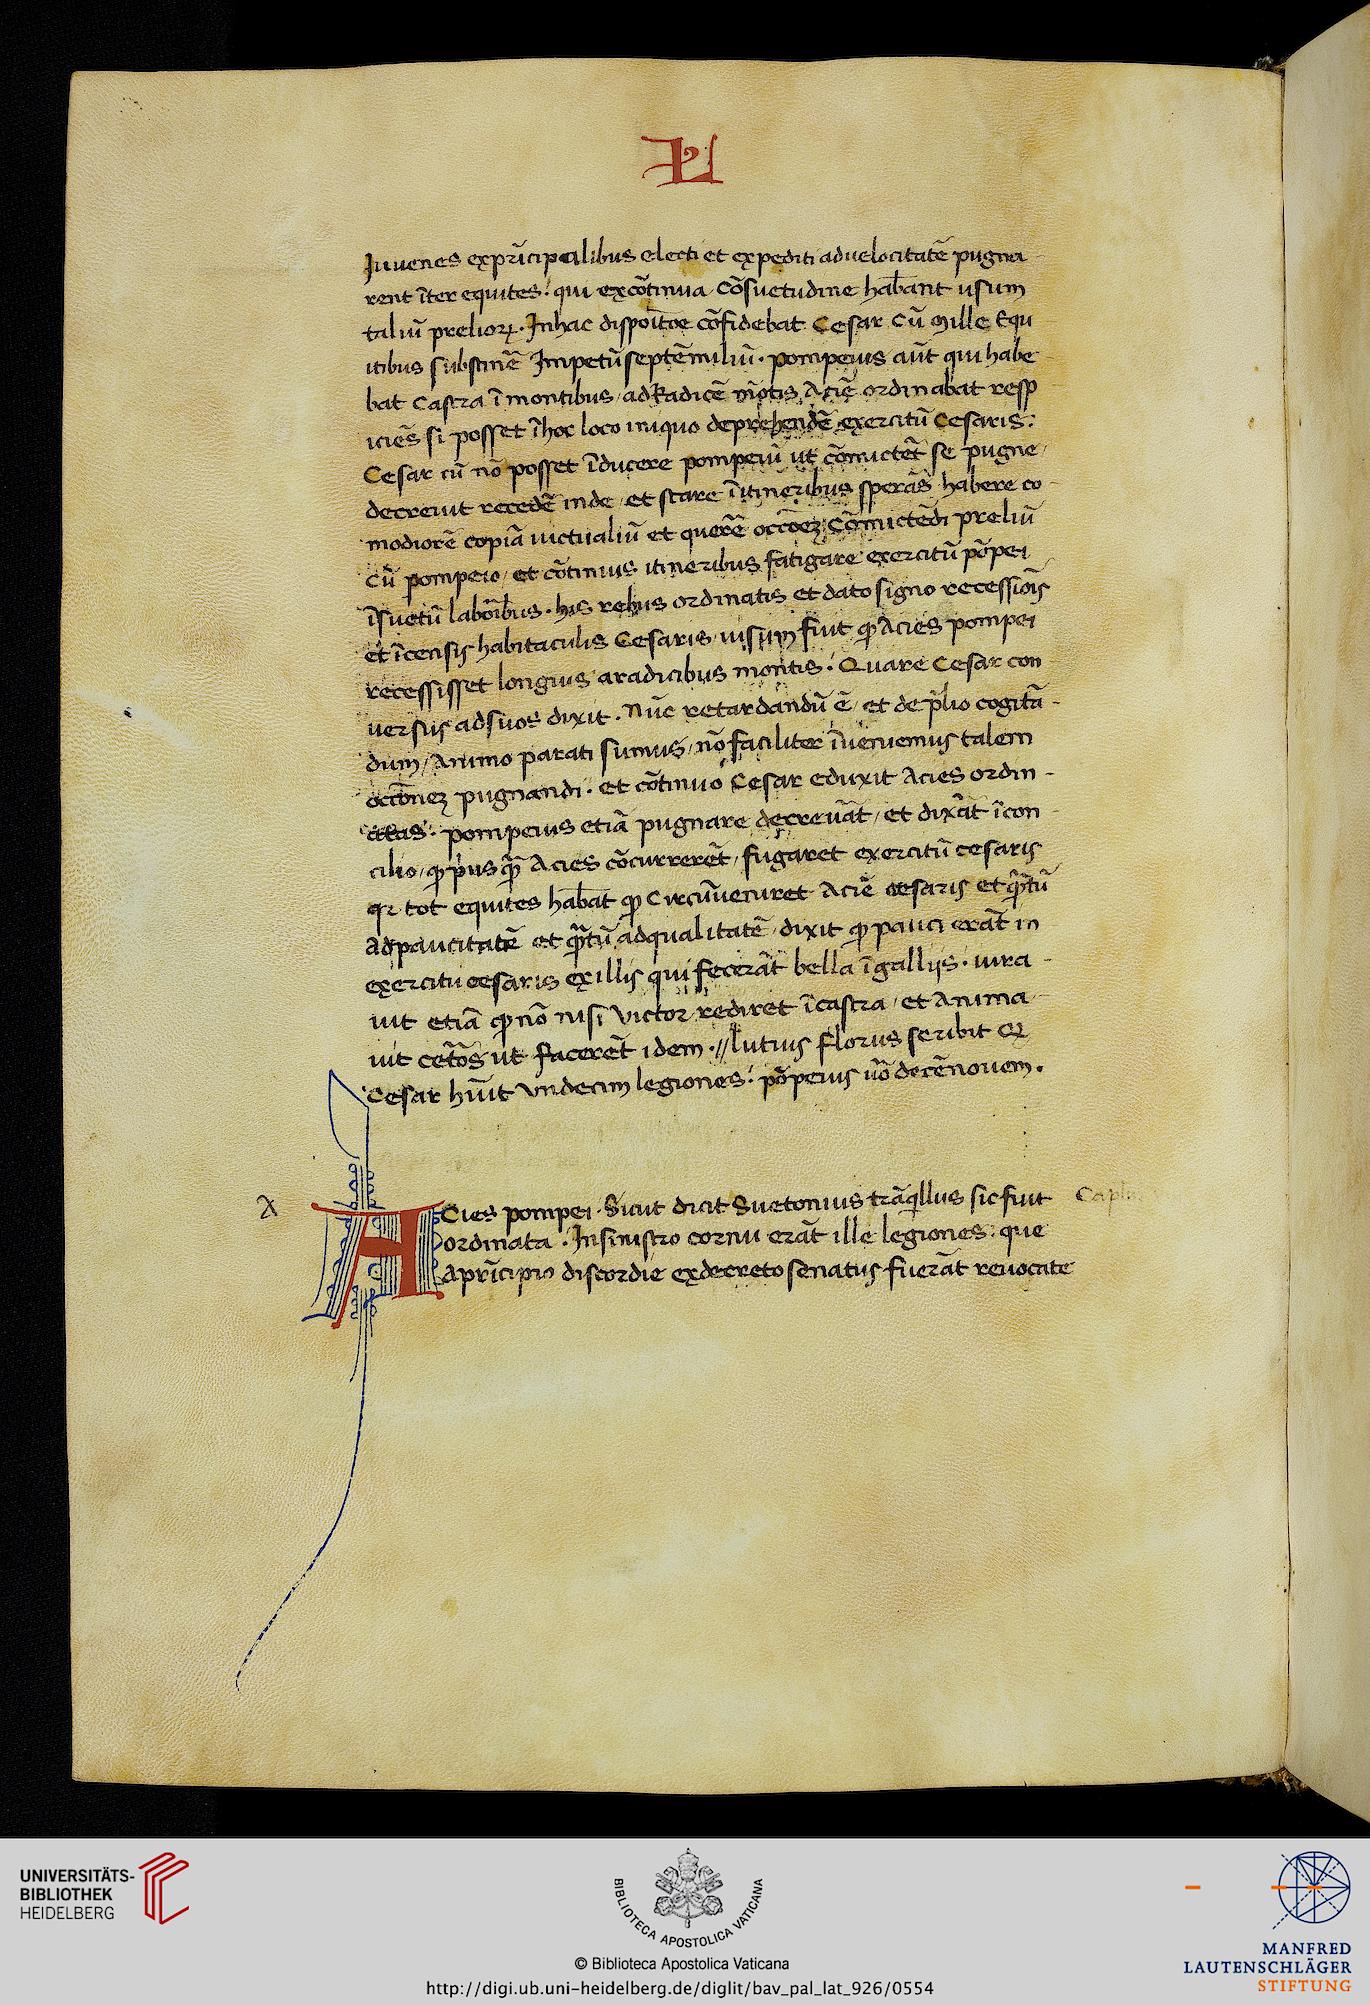 L
Juvenes exp̄ricipalibus electi et expediti aduelocitatē pugna
rent īter equites: qui excōtinua Cōsuetudine hab̄ant usum
taliū prelioꝝ. Inhac dispoit̄oe cōfidebat Cesar cū Mille Equ
itibus substinē̄ Impetū septē miliū. pompeius aūt qui habe
bat Castra ī montibus adRadicē mōtis Aciē ordinabat resp
iciēs si posset īhoc loco iniquo deprehendē̄ exercitū Cesaris:
Cesar cū nō posset īducere pompeiū ut cōmictēt se pugne
decreuit recedē̄ inde et stare ī itineribus sperās habere co
modiorē copiā uictualiū et querē̄ occōeꝫ Cōmictēdi preliū
cū pompeio et cōtinuis itineribus fatigare exercitū pōpei
īsuetū laborib̄us. his rebus ordinatis et dato signo recessiōis
et īcensis habitaculis Cesaris uisum fuit ꝙ Acies pompei
recessisset longius aradicibus montis: Quare Cesar con
uersus adsuos dixit. Nūc retardandū ē et de p̄lio cogitā
dum, Animo parati sumus, nō faciliter īueniemus talem
occōneꝫ pugnandi. et cōtinuo Cesar eduxit Acies ordin
atas. pompeius etiā pugnare decreuāt et dixāt īcon
cilio, ꝙ p̄us q̄ Acies cōcurrerēt, fugaret exercitū cesaris
qꝛ tot equites hab̄at ꝙ Circūueniret Aciē cesaris et q̄tū
adpaucitatē et q̄tū adqualitatē dixit ꝙ pauci erāt in
exercitu cesaris exillis qui fecerāt bella īgalliis. iura
uit etiā ꝙ nō nisi Victor rediret īcastra et Anima
uit cet̄os ut facerēt idem. // Lutius florus scribit Q
Cesar hūit Vndecim legiones: pōpeius ūo decēnouem.
A
ACies pompei. Sicut dicit Suetonius trāq̄llus sic fuit
Cap
ordinata. Insinistro cornu erāt ille legiones: que
ap̄ricipio discordie exdecreto senatus fuerāt reuocate
UNIVERSITÄTS-
BIBLIOTHEK
HEIDELBERG
BIBLIOTECA APOSTOLICA VATICANA
© Biblioteca Apostolica Vaticana
http://digi.ub.uni-heidelberg.de/diglit/bav_pal_lat_926/0554
MANFRED
LAUTENSCHLÄGER
STIFTUNG